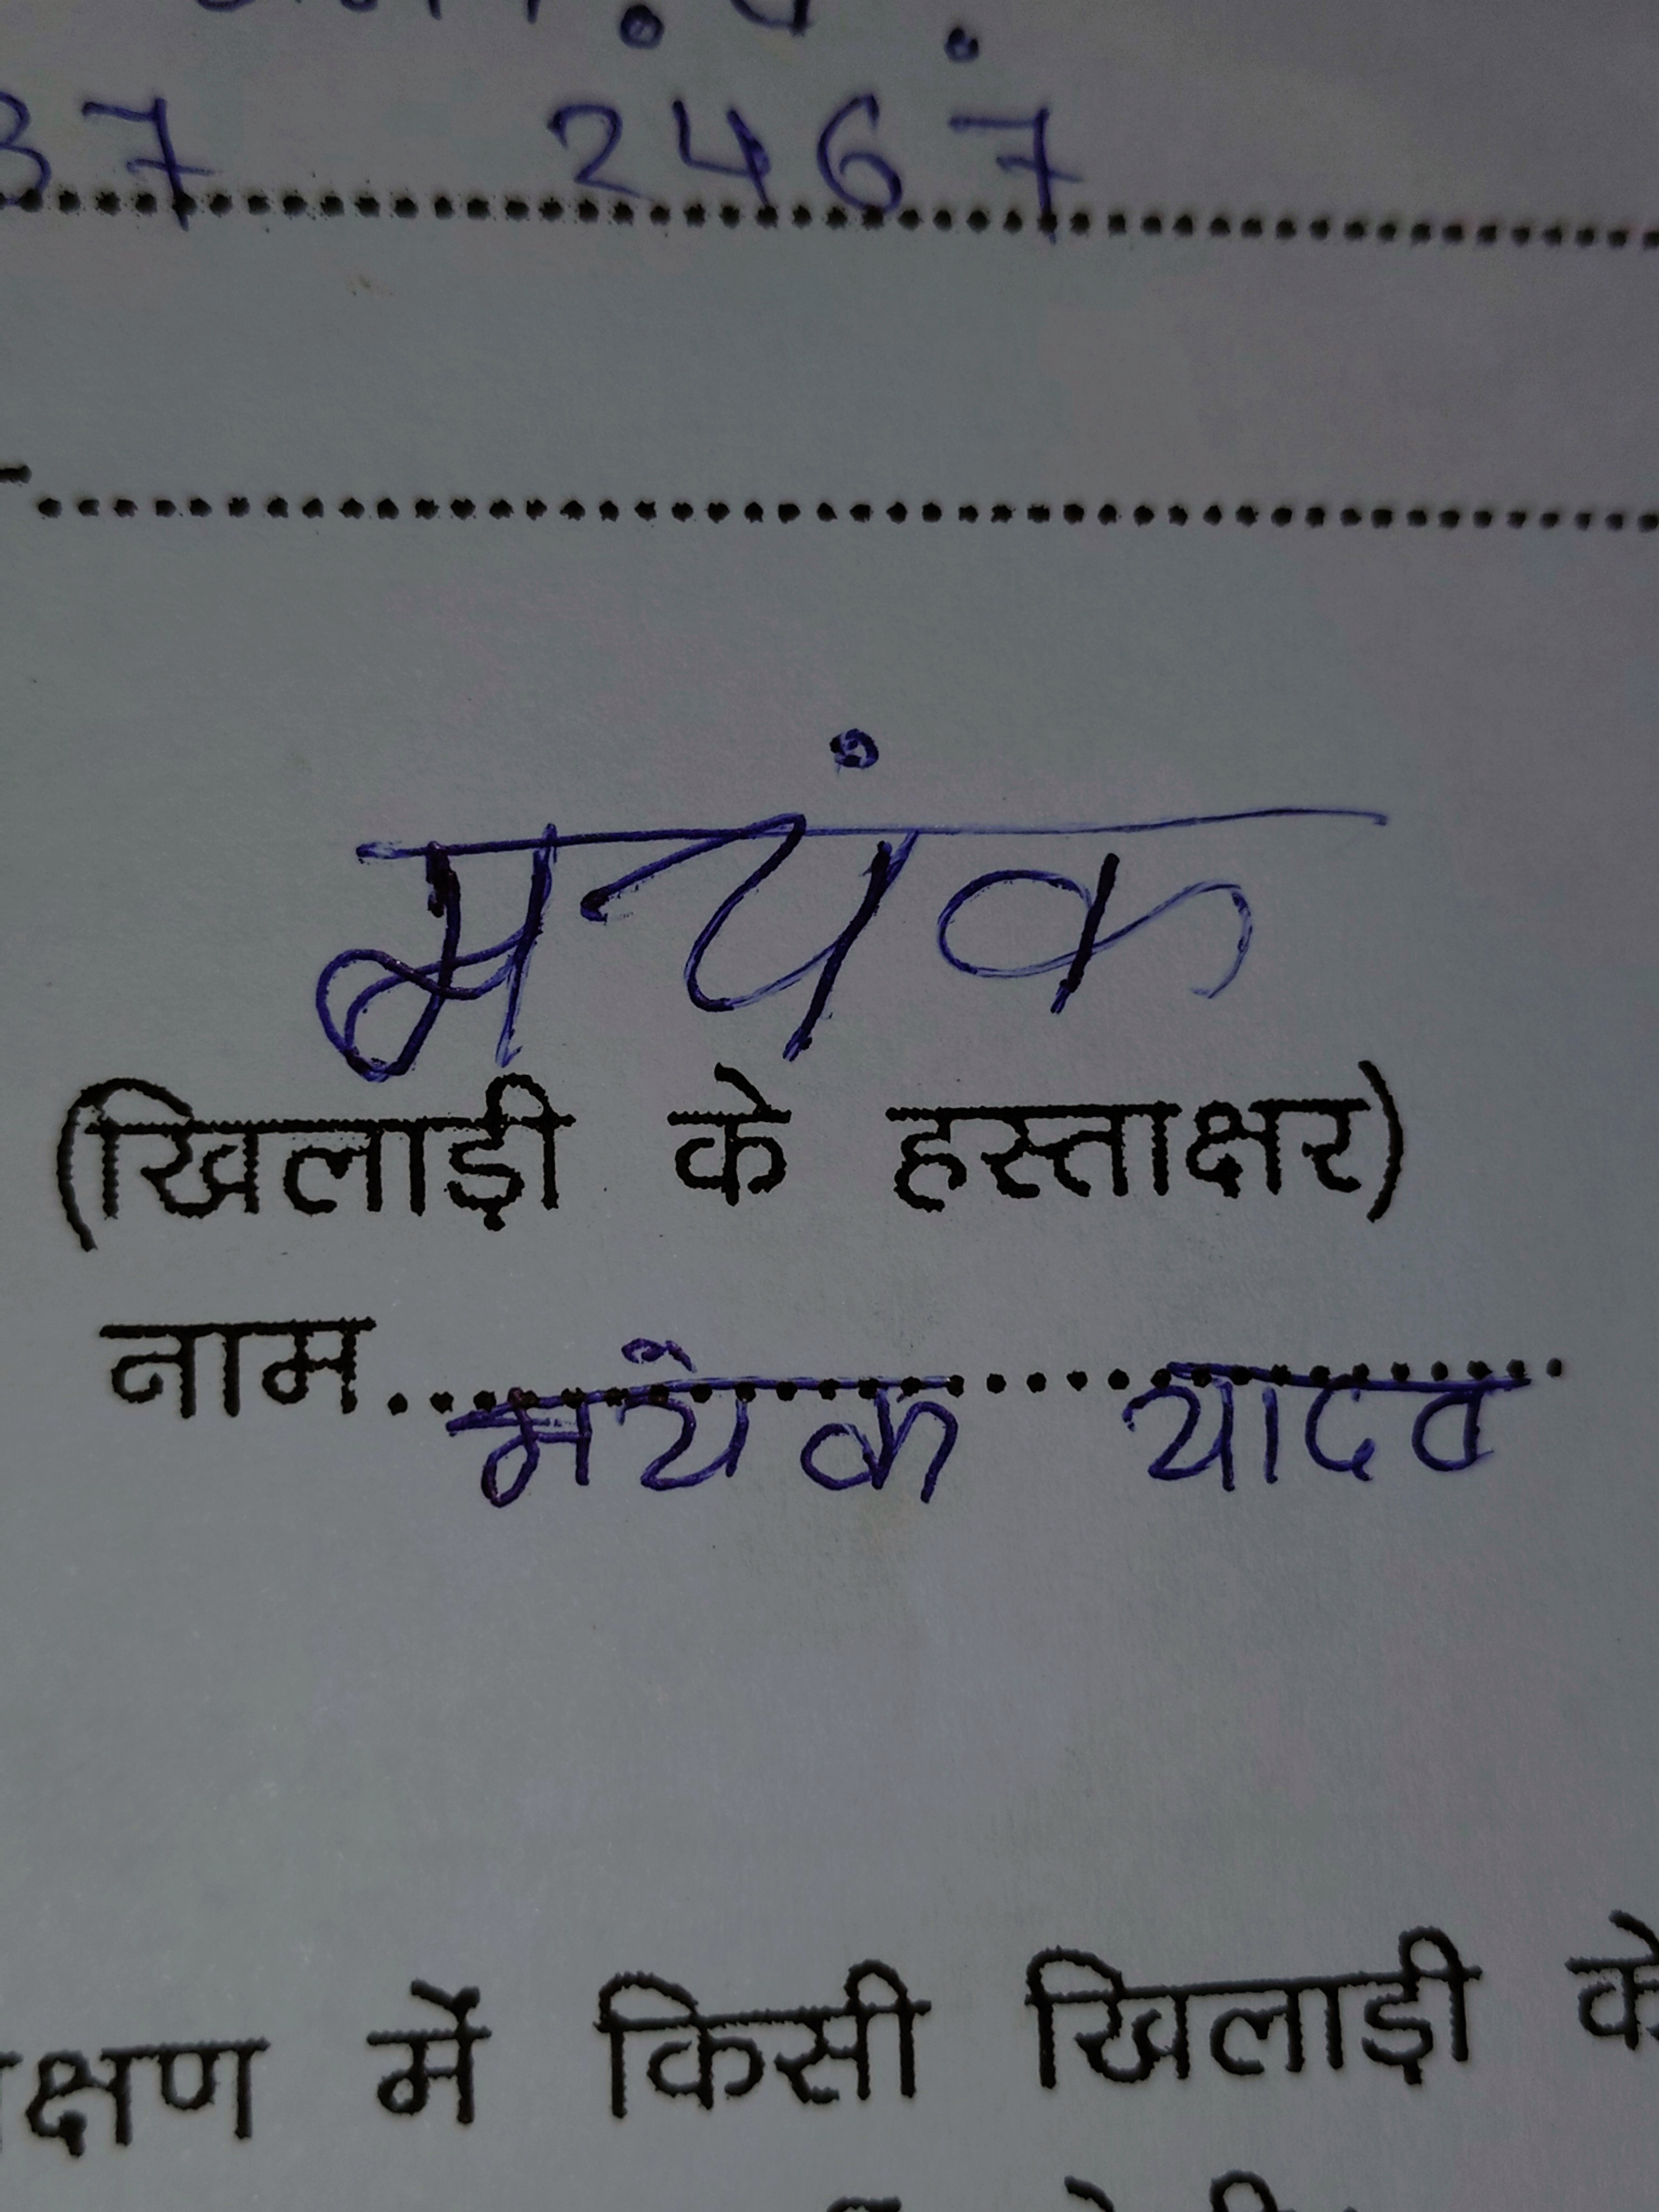 37 2467
मयंक
(खिलाड़ी के हस्ताक्षर)
नाम.......मयंक यादव
क्षण में किसी खिलाड़ी के